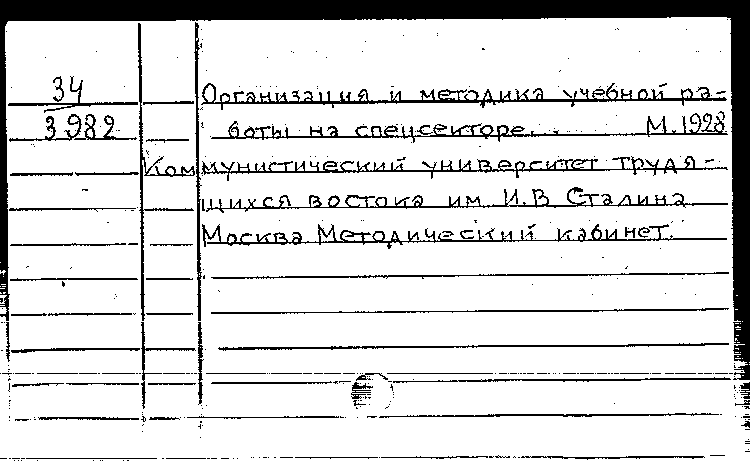 34
Организация и методика учебной ра-
3982 боты на спецсекторе. . М. 1928
Коммунистический университет трудя-
щихся востока им. И.В Сталина
Москва Методический кабинет.